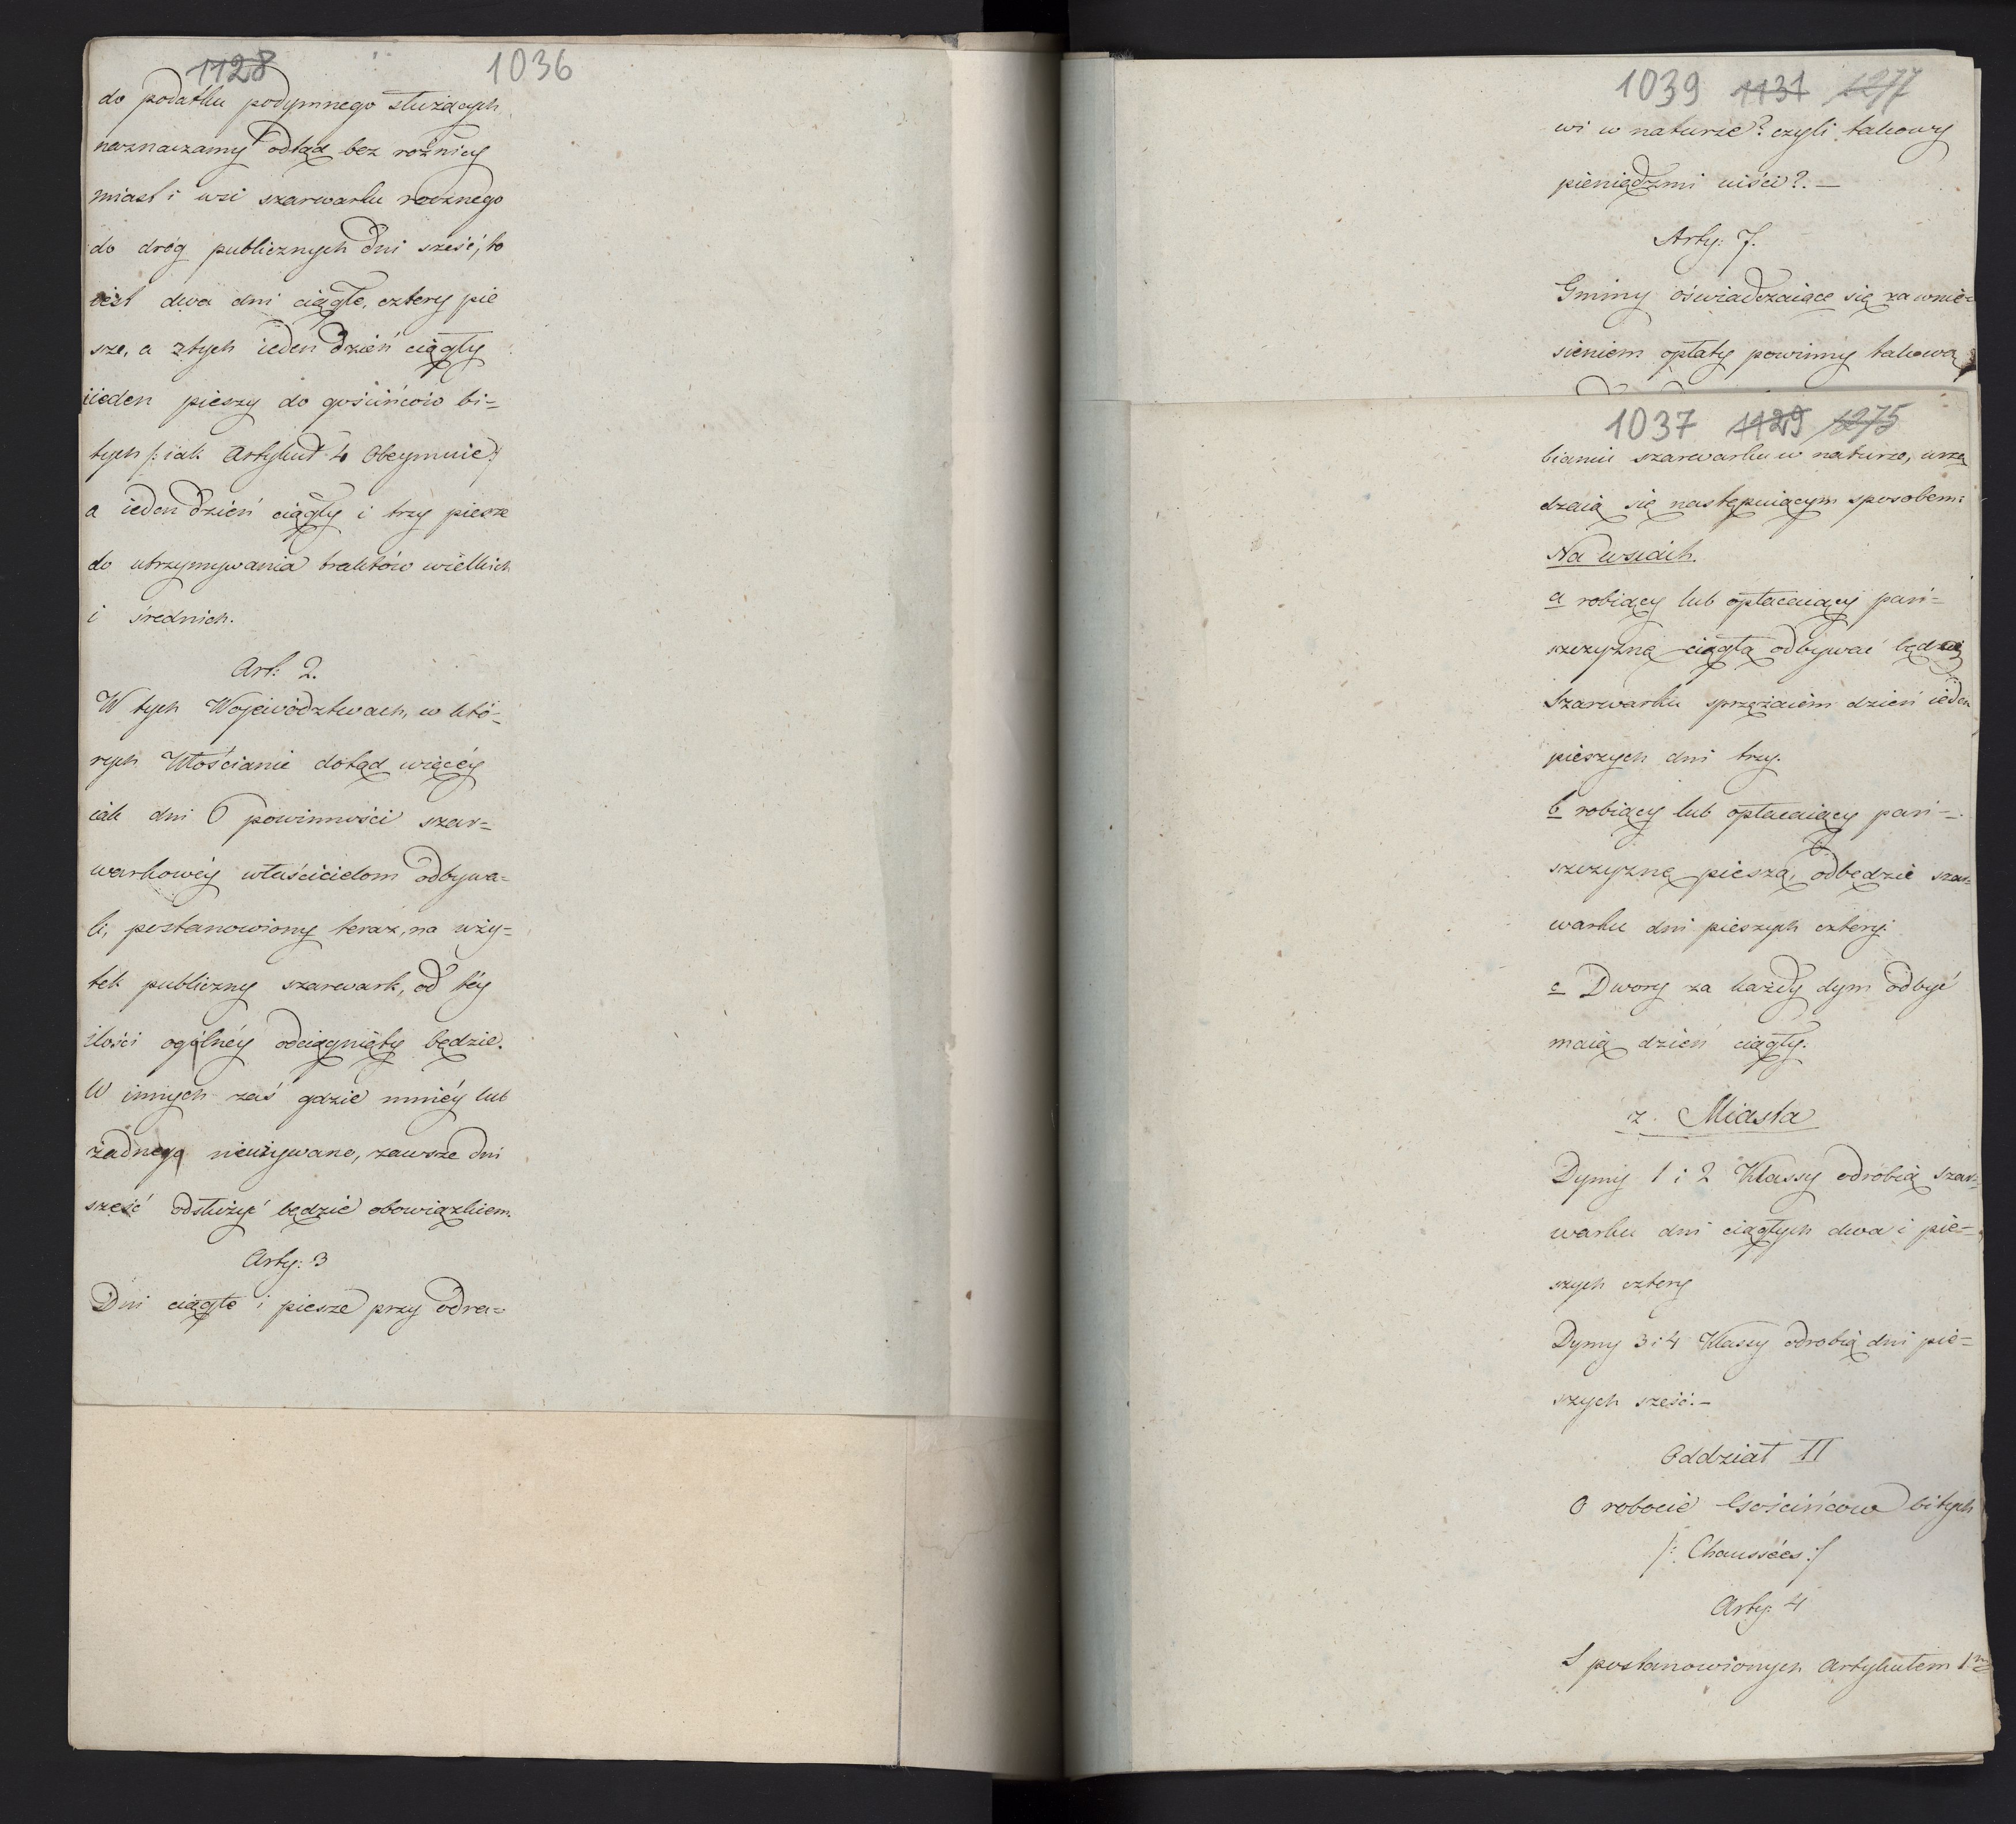 1128 1036
do podatku podymnego służących
naznaczamy odtąd bez różnicy
miast i wsi szarwarku rocznego
do dróg publicznych dni sześć, to
iest dwa dni ciągłe, cztery pie
sze, a z tych ieden dzień ciągły
i ieden pieszy do gościńców bi=
tych /: iak Artykuł 4 obeymuie :/
a ieden dzień ciągły i trzy piesze
do utrzymywania traktów wielkich
i średnich.
Art: 2.
W tych Wojewódźtwach, w któ=
rych Włościanie dotąd więcéy
iak dni 6 powinności szar=
warkowéy właścicielom odbywa=
li, postanowiony teraz, na uży=
tek publiczny szarwark, od téy
ilości ogólnéy odciągnięty będzie.
W innych zaś gdzie mniéy lub
żadnego nieużywano, zawsze dni
sześć odsłużyć będzie obowiązkiem.
Arty: 3
Dni ciągłe i piesze przy odra=
1039 1131 1277
wi w naturze? czyli takowy
pieniądzmi uiści?. —
Arty: 7.
Gminy oświadczaiące się za wnie=
sieniem opłaty powinny takową
1037 1129 1275
bianiu szarwarku w naturze, urzą
dzaią się następuiącym sposobem:
Na wsiach.
a robiący lub opłacaiący pań=
szczyznę ciągłą odbywać będzie
Szarwarku sprzężaiem dzień ieden
pieszych dni trzy.
b robiący lub opłacaiący pań=
szczyznę pieszą, odbędzie szar=
warku dni pieszych cztery.
c Dwory za każdy dym odbyć
maią dzień ciągły.
z. Miasta
Dymy 1 i 2 Klassy odrobią szar=
warku dni ciągłych dwa i pie=
szych cztery
Dymy 3 i 4 Klassy odrobią dni pie=
szych sześć. —
Oddział II
O robocie Gościńców bitych
/: Chaussées :/
Arty: 4
Z postanowionych Artykułem 1m